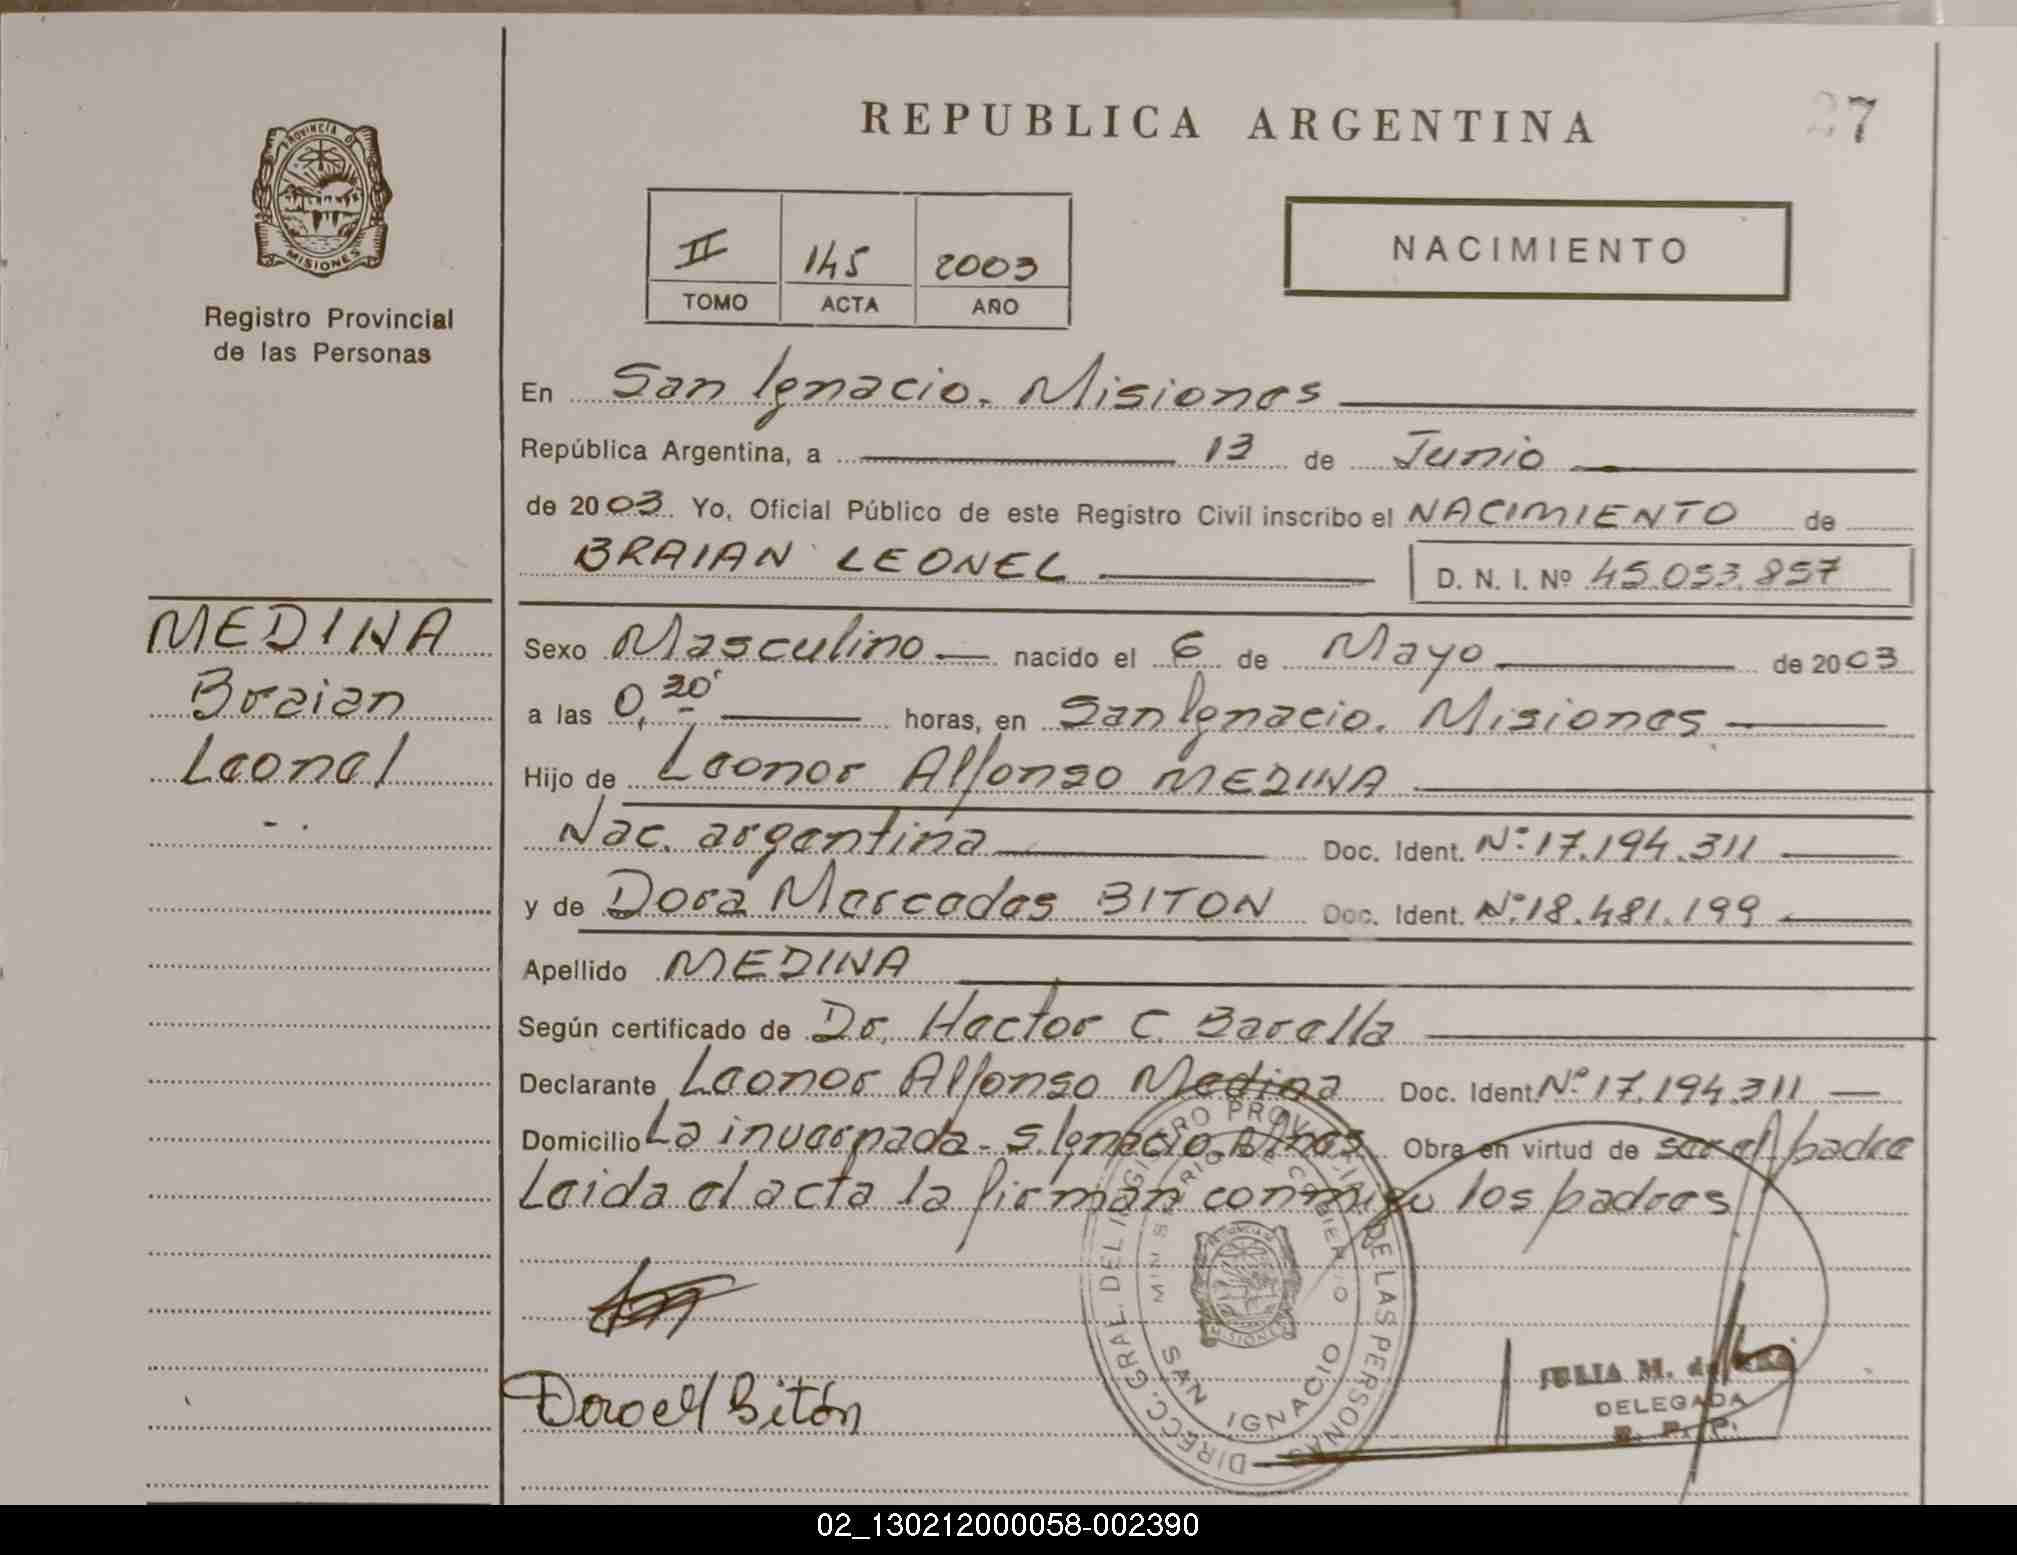 REPUBLICA ARGENTINA
27
PROVINCIA DE
MISIONES
Registro Provincial
de las Personas
II 145 2003
TOMO ACTA AÑO
NACIMIENTO
En San Ignacio. Misiones
República Argentina, a 13 de Junio
de 2003. Yo, Oficial Público de este Registro Civil inscribo el NACIMIENTO de
BRAIAN LEONEL D. N. I. Nº 45.053.857
MEDINA
Braian
Leonel
Sexo Masculino nacido el 6 de Mayo de 2003
a las 0,30' horas, en San Ignacio. Misiones
Hijo de Leonor Alfonso MEDINA
Nac. argentina Doc. Ident. Nº 17.194.311
y de Dora Mercedes BITON Doc. Ident. Nº 18.481.199
Apellido MEDINA
Según certificado de Dr. Hector C. Barella
Declarante Leonor Alfonso Medina Doc. Ident. Nº 17.194.311
Domicilio La invernada - S. Ignacio Mnes Obra en virtud de ser el padre
Leida el acta la firman conmigo los padres
DIRECC. GRAL. DEL REGISTRO PROVINCIAL DE LAS PERSONAS
MINISTERIO DE GOBIERNO
MISIONES
SAN IGNACIO
Bitón
JULIA M. de
DELEGADA
R. P. P.
02_130212000058-002390